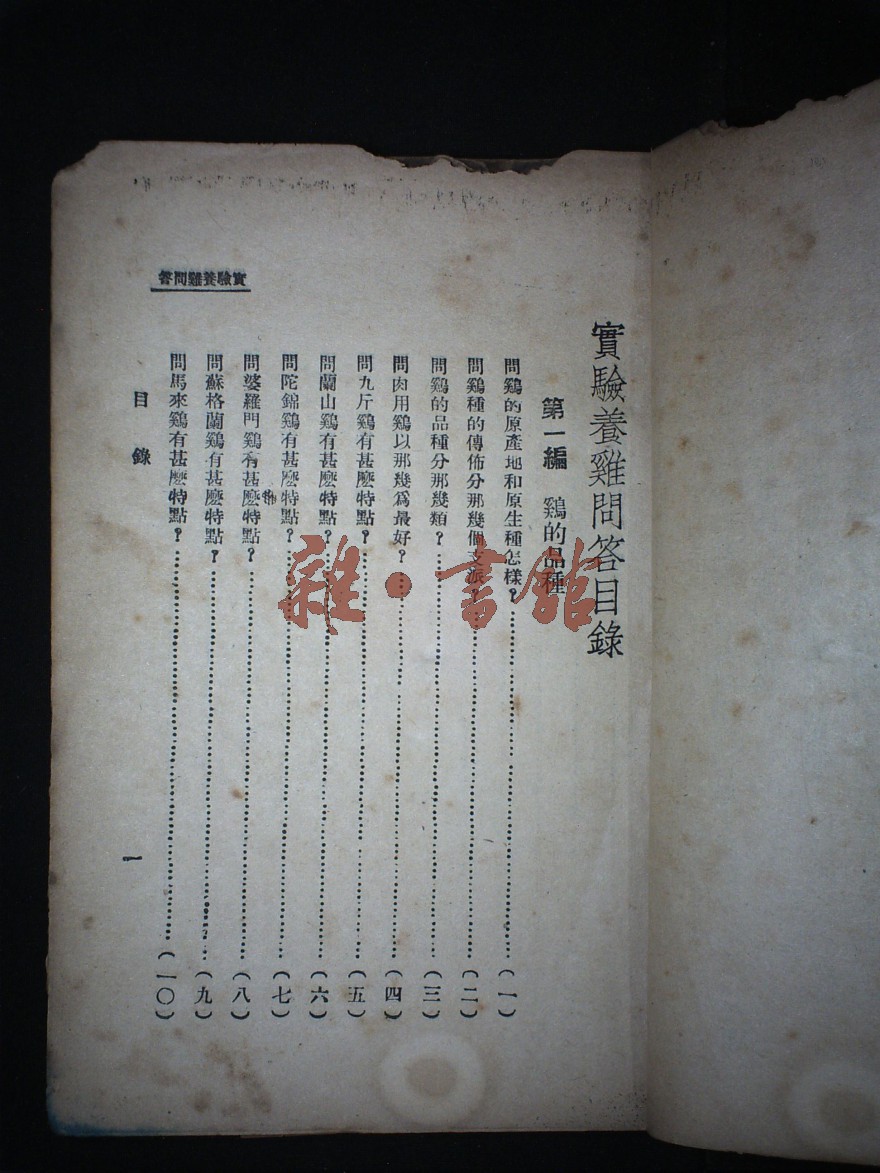 實驗養雞問答目錄
第一編 鷄的品種
問鷄的原產地和原生種怎樣？……(一)
問鷄種的傳佈分那幾個支派？……(二)
問鷄的品種分那幾類？……(三)
問肉用鷄以那幾爲最好？……(四)
問九斤鷄有甚麽特點？……(五)
問蘭山鷄有甚麽特點？……(六)
問陀錦鷄有甚麽特點？……(七)
問婆羅門鷄有甚麽特點？……(八)
問蘇格蘭鷄有甚麽特點？……(九)
問馬來鷄有甚麽特點？……(一〇)
實驗養雞問答
目錄
一
雜·書館